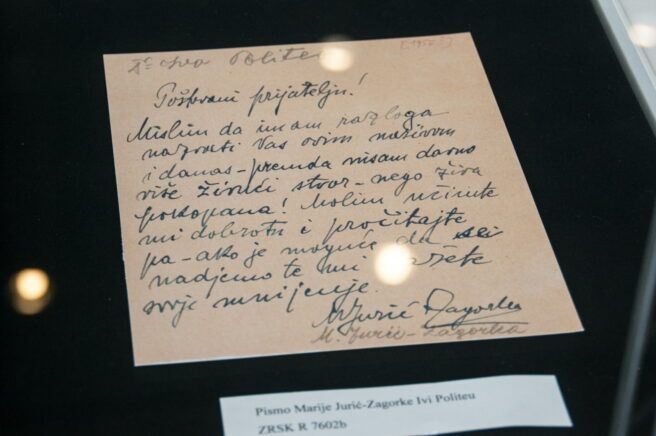 Dr Ivo Polite
[1950?]
Poštovani prijatelju!
Mislim da imam razloga
nazvati Vas ovim nazivom
i danas - premda nisam davno
više živući stvor - nego živa
pokopana! Molim učinite
mi dobrotu i pročitajte
pa - ako je moguće da se
nadjemo te mi kažete
svoje mnijenje.
MJurić Zagorka
M. Jurić - Zagorka
Pismo Marije Jurić-Zagorke Ivi Politeu
ZRSK R 7602b